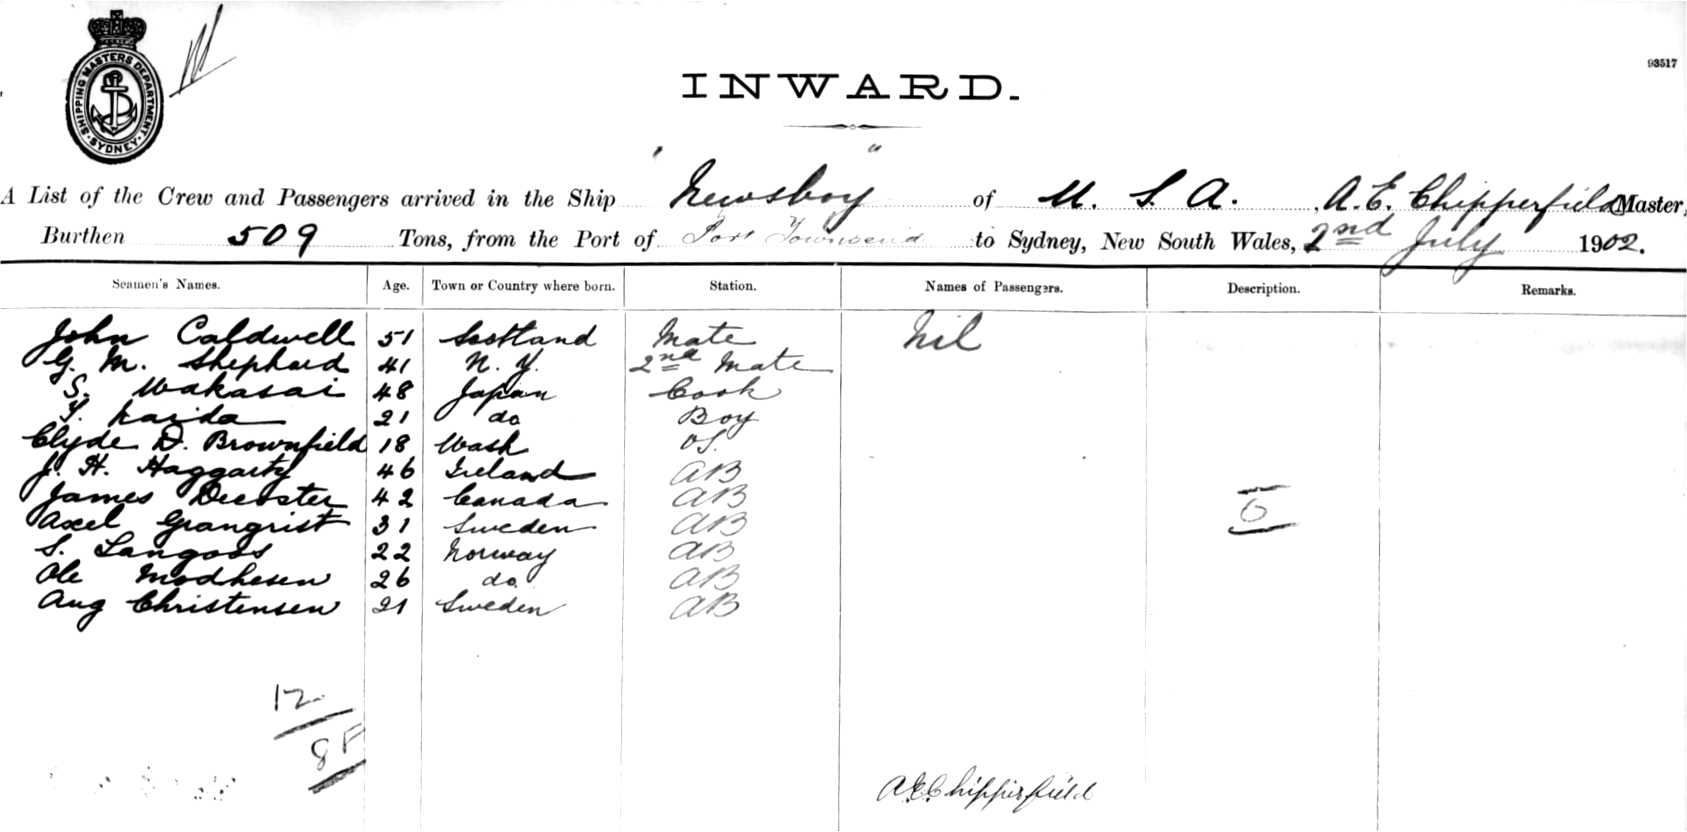 SHIPPING MASTERS DEPARTMENT
SYDNEY
93517
INWARD.
A List of the Crew and Passengers arrived in the Ship "Newsboy" of U. S. A. , A. E. Chipperfield Master,
Burthen 509 Tons, from the Port of Port Townsend to Sydney, New South Wales, 2nd July 1902.
Seamen's Names. Age. Town or Country where born. Station. Names of Passengers. Description. Remarks.
John Caldwell 51 Scotland Mate Nil
G. M. Shephard 41 N. Y. 2nd Mate
S. Wakasai 48 Japan Cook
21 do Boy
Clyde D. Brownfield 18 Wash OS.
J. H. Haggarty 46 Ireland AB
James Decoster 42 Canada AB
Axel Grangrist 31 Sweden AB
S. 22 Norway AB
Ole Modhesen 26 do AB
Aug Christensen 21 Sweden AB
12
8F
A.E. Chipperfield